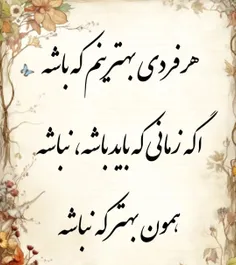 هر فردی بهترینم که باشه
اگه زمانی که باید باشه، نباشه
همون بهتر که نباشه